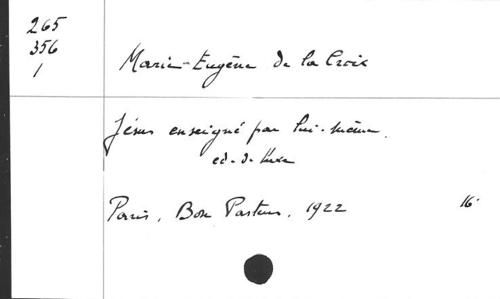 265
356
1
Marie-Eugène de la Croix
Jésus enseigné par lui-même.
ed. de luxe
Paris, Bon Pasteur, 1922 16°